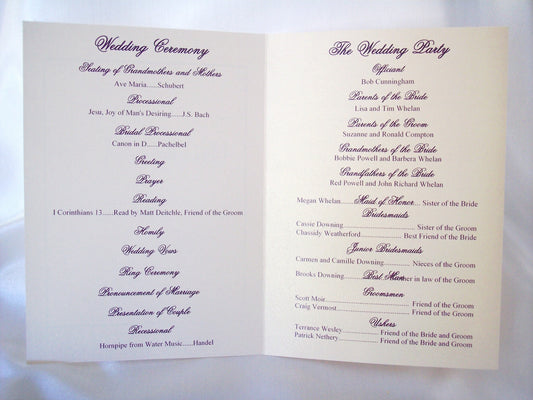 Wedding Ceremony
Seating of Grandmothers and Mothers
Ave Maria......Schubert
Processional
Jesu, Joy of Man's Desiring......J.S. Bach
Bridal Processional
Canon in D......Pachelbel
Greeting
Prayer
Reading
I Corinthians 13......Read by Matt Deitchle, Friend of the Groom
Homily
Wedding Vows
Ring Ceremony
Pronouncement of Marriage
Presentation of Couple
Recessional
Hornpipe from Water Music......Handel
The Wedding Party
Officiant
Bob Cunningham
Parents of the Bride
Lisa and Tim Whelan
Parents of the Groom
Suzanne and Ronald Compton
Grandmothers of the Bride
Bobbie Powell and Barbera Whelan
Grandfathers of the Bride
Red Powell and John Richard Whelan
Maid of Honor
Megan Whelan.......... Sister of the Bride
Bridesmaids
Cassie Downing.......... Sister of the Groom
Chassidy Weatherford.......... Best Friend of the Bride
Junior Bridesmaids
Carmen and Camille Downing.......... Nieces of the Groom
Best Man
Brooks Downing.......... in law of the Groom
Groomsmen
Scott Moir.......... Friend of the Groom
Craig Vermost.......... Friend of the Groom
Ushers
Terrance Wesley.......... Friend of the Bride and Groom
Patrick Nethery.......... Friend of the Bride and Groom